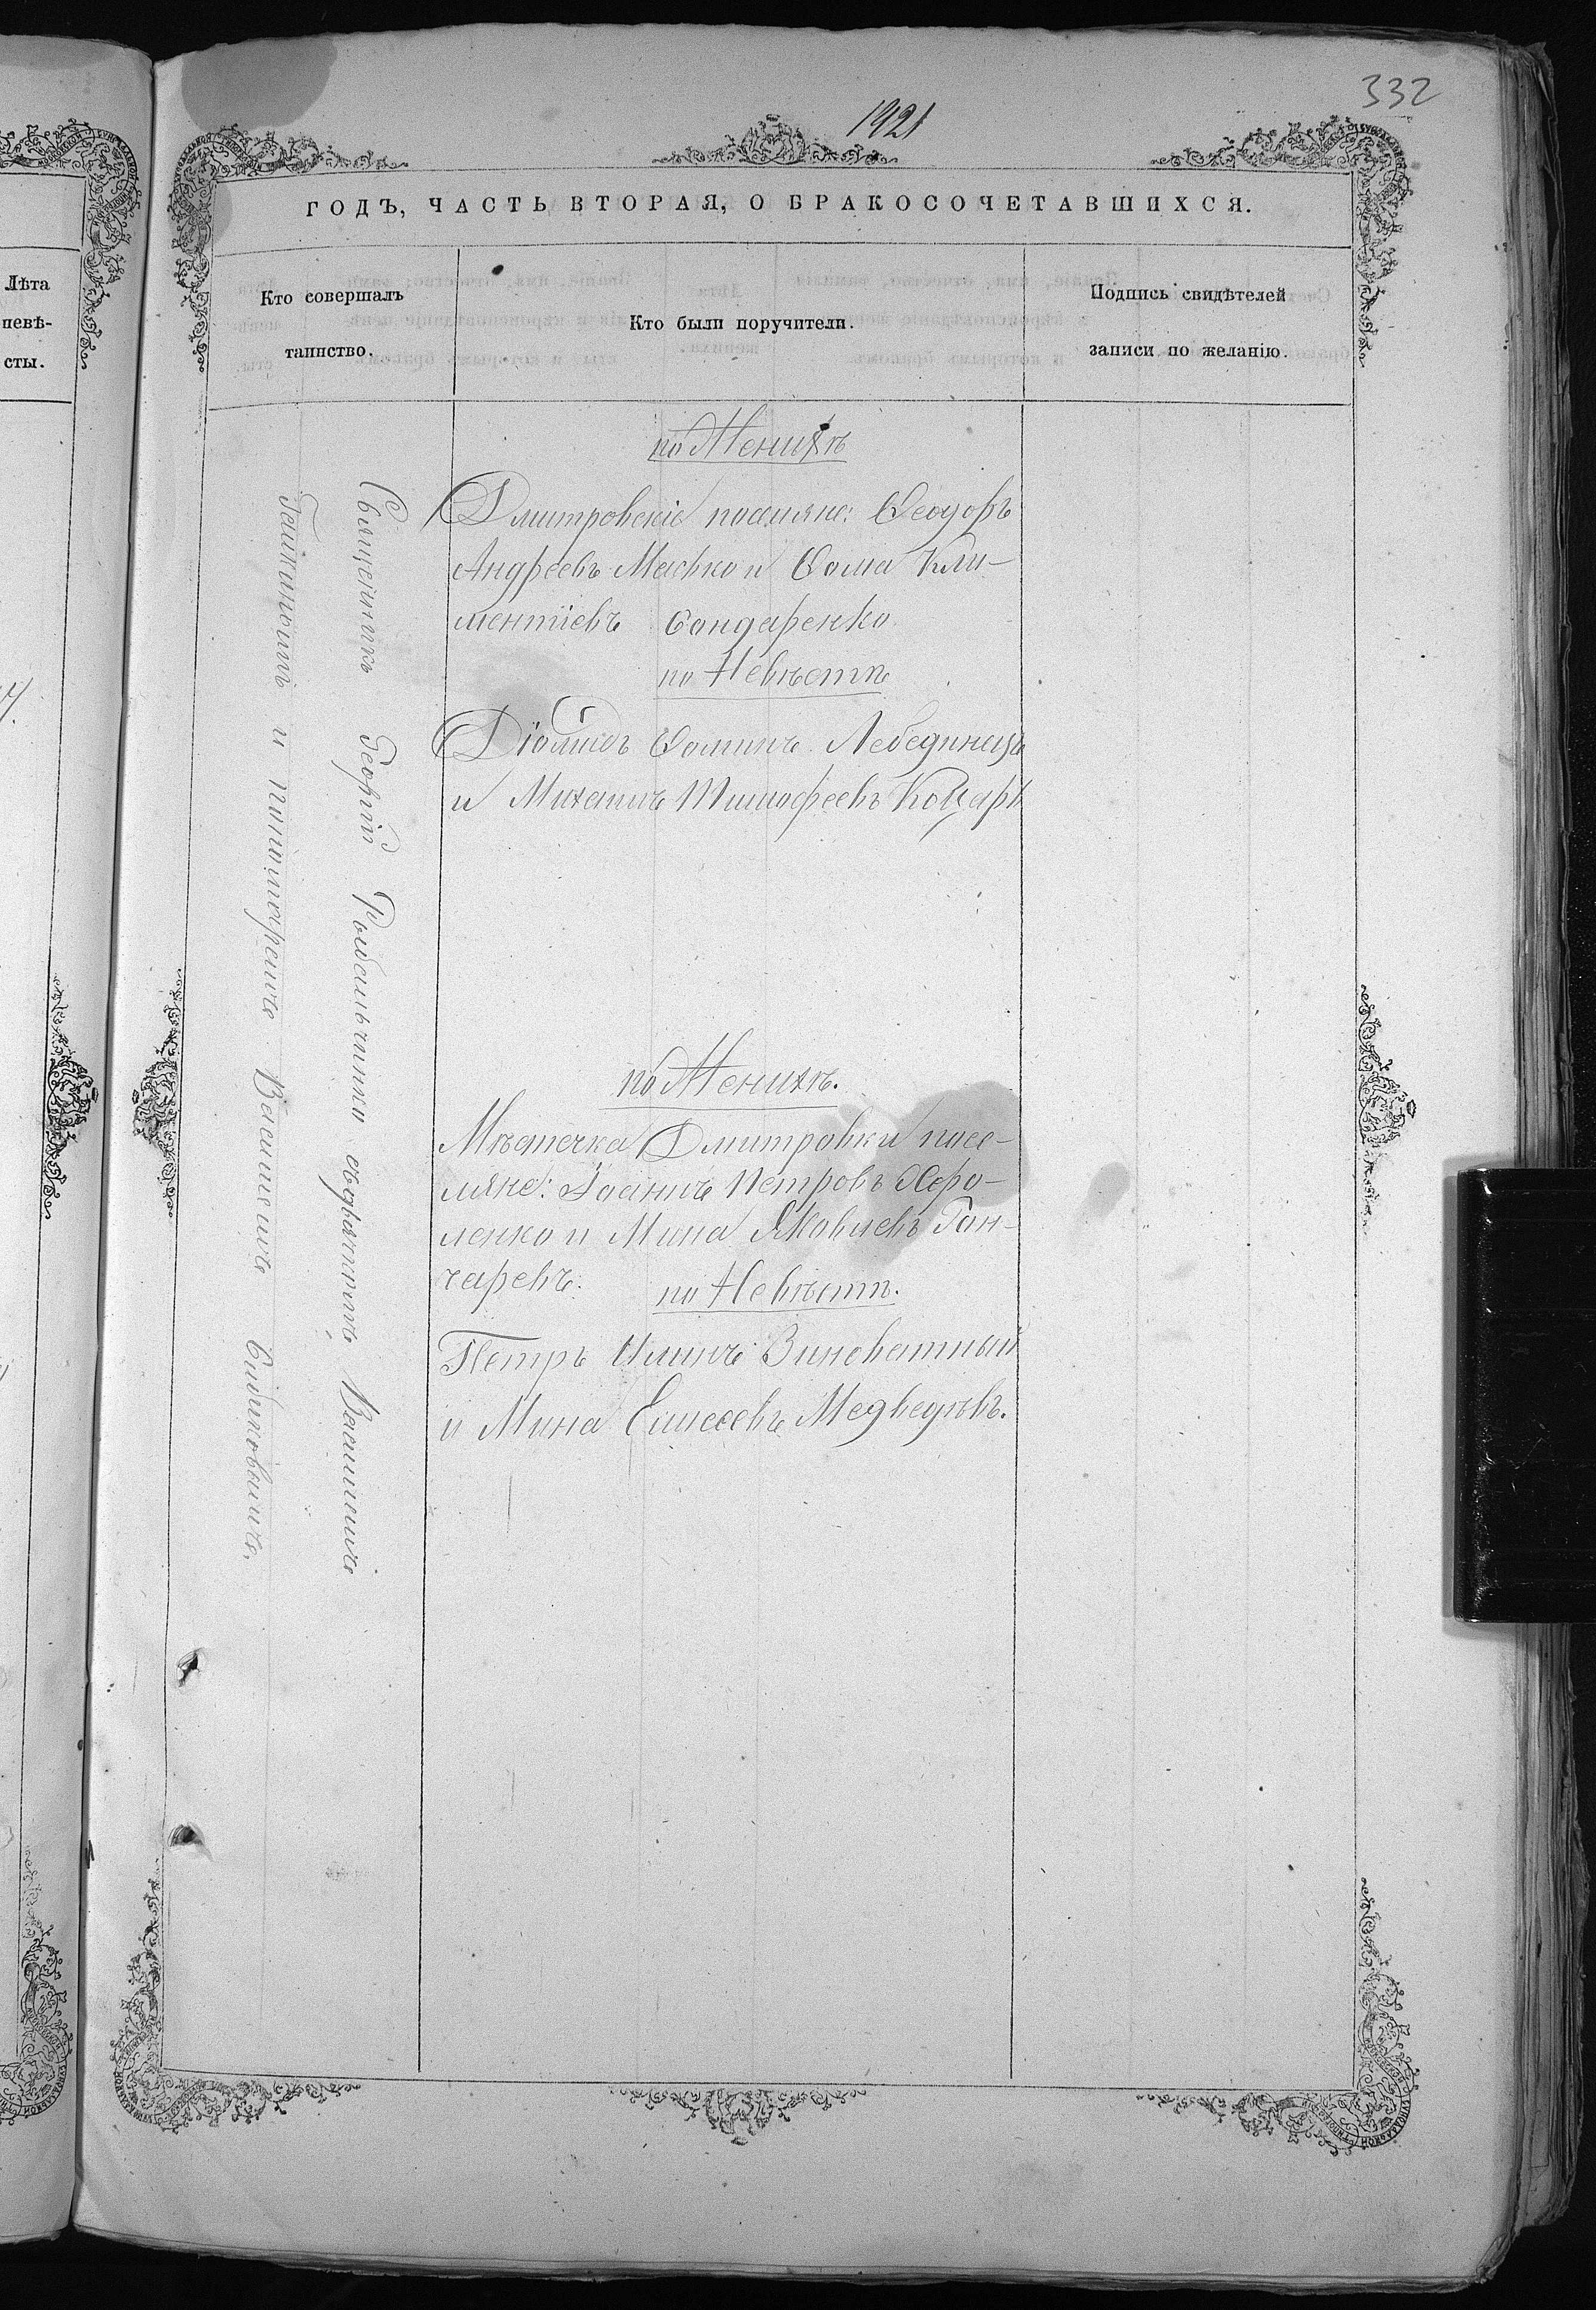 332
1921
ГОДЪ, ЧАСТЬ ВТОРАЯ, О БРАКОСОЧЕТАВШИХСЯ.
Лѣта
невѣ-
сты.
Кто совершалъ
таинство.
Кто были поручители.
Подпись свидѣтелей
записи по желанію.
Священникъ Георгій Рыбальченко съ дьякомъ Василіемъ
и пономаремъ Василіемъ
по Женихѣ
Дмитровскіе поселяне: Ѳеодоръ
Андреевъ Масько и Ѳома Кли-
ментіевъ Бондаренко
по Невѣстѣ
Ѳоминъ Лебединецъ
и Михаилъ Тимофеевъ Коцарь
по Женихѣ.
Мѣстечка Дмитровки посе-
ляне: Іоаннъ Петровъ
и Мина Яковлевъ Гон-
чаревъ.
по Невѣстѣ.
Петръ Илинъ Виноватный
и Мина Елисеевъ Медведѣвъ.